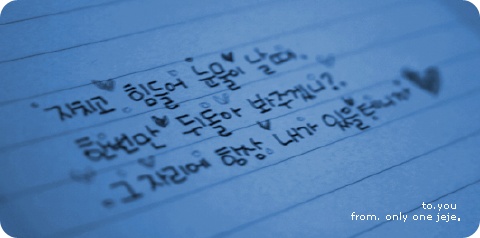 지치고 힘들어 눈물이 날때.
한번만 뒤돌아 봐주겠니?.
그자리에 항상 내가 있을테니까
to.you
from. only one jeje.